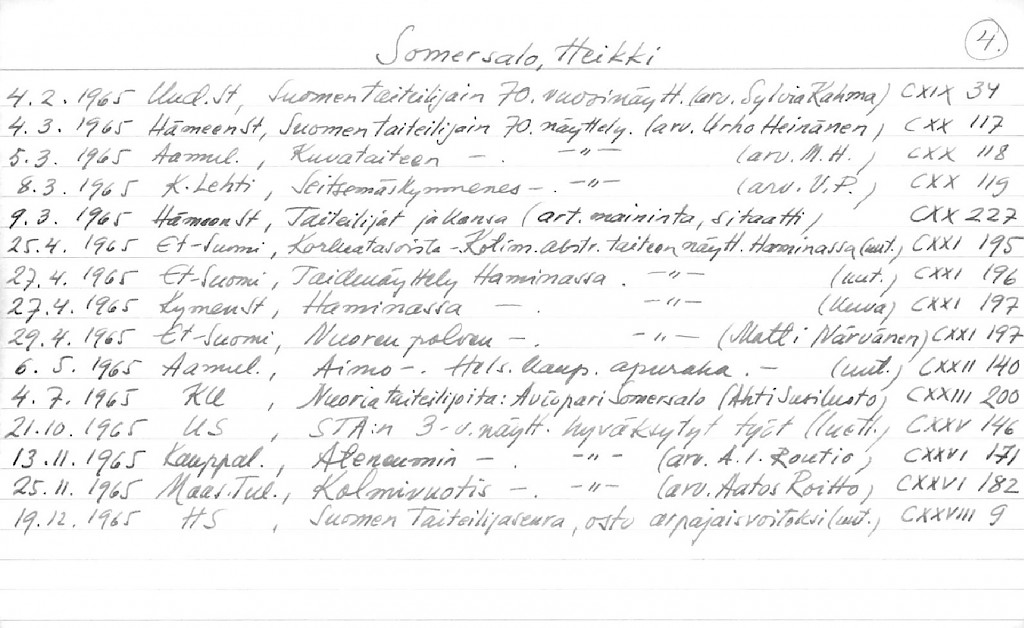 4.
Somersalo, Heikki
4.2.1965 Uud.St, Suomen taiteilijain 70. vuosinäytt. (arv. Sylvia Kahma) CXIX 34
4.3.1965 HämeenSt, Suomen taiteilijain 70. näyttely. (arv. Urho Heinänen) CXX 117
5.3.1965 Aamul., Kuvataiteen — . —"— (arv. M.H.) CXX 118
8.3.1965 K.Lehti, Seitsemäskymmenes — . —"— (arv. V.P.) CXX 119
9.3.1965 HämeenSt, Taiteilijat ja kansa (art. maininta, sitaatti) CXX 227
25.4.1965 Et-Suomi, Korkeatasoista - Kolim. abstr. taiteen näytt. Haminassa (uut.) CXXI 195
27.4.1965 Et-Suomi, Taidenäyttely Haminassa . —"— (uut.) CXXI 196
27.4.1965 KymenSt, Haminassa — . —"— (kuva) CXXI 197
29.4.1965 Et-Suomi, Nuoren polven — . —"— (Matti Närvänen) CXXI 197
6.5.1965 Aamul., Aimo — . Hels. kaup. apuraha . — (uut.) CXXII 140
4.7.1965 KU, Nuoria taiteilijoita: Aviopari Somersalo (Ahti Susiluoto) CXXIII 200
21.10.1965 US, STA:n 3-v.näytt. hyväksytyt työt (luett.) CXXV 146
13.11.1965 Kauppal., Ateneumin — . —"— (arv. A.I. Routio) CXXVI 171
25.11.1965 Maas.Tul., Kolmivuotis — . —"— (arv. Aatos Roitto) CXXVI 182
19.12.1965 HS, Suomen Taiteilijaseura, osto arpajaisvoitoksi (uut.) CXXVIII 9